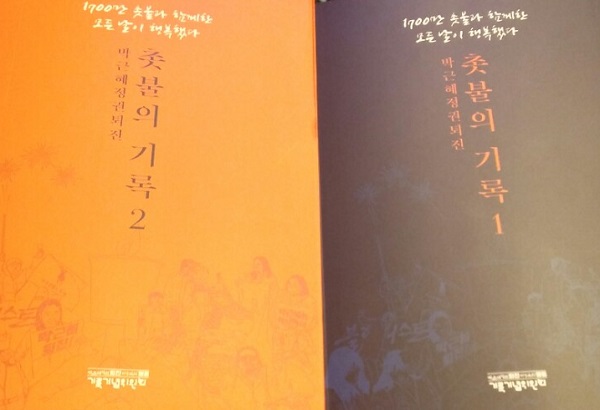 1700만 촛불과 함께한
모든 날이 행복했다
박근혜정권퇴진
촛불의 기록 2
기록기념위원회
1700만 촛불과 함께한
모든 날이 행복했다
박근혜정권퇴진
촛불의 기록 1
기록기념위원회